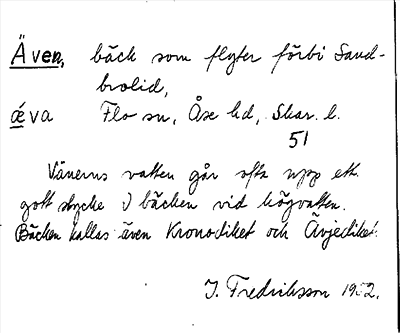 Även, bäck som flyter förbi Sand-
brolid,
ǽva Flo sn, Åse hd, Skar. l.
51
Vänerns vatten går ofta upp ett
gott stycke i bäcken vid högvatten.
Bäcken kallas även Kronodiket och Ävjediket.
J. Fredriksson 1952.